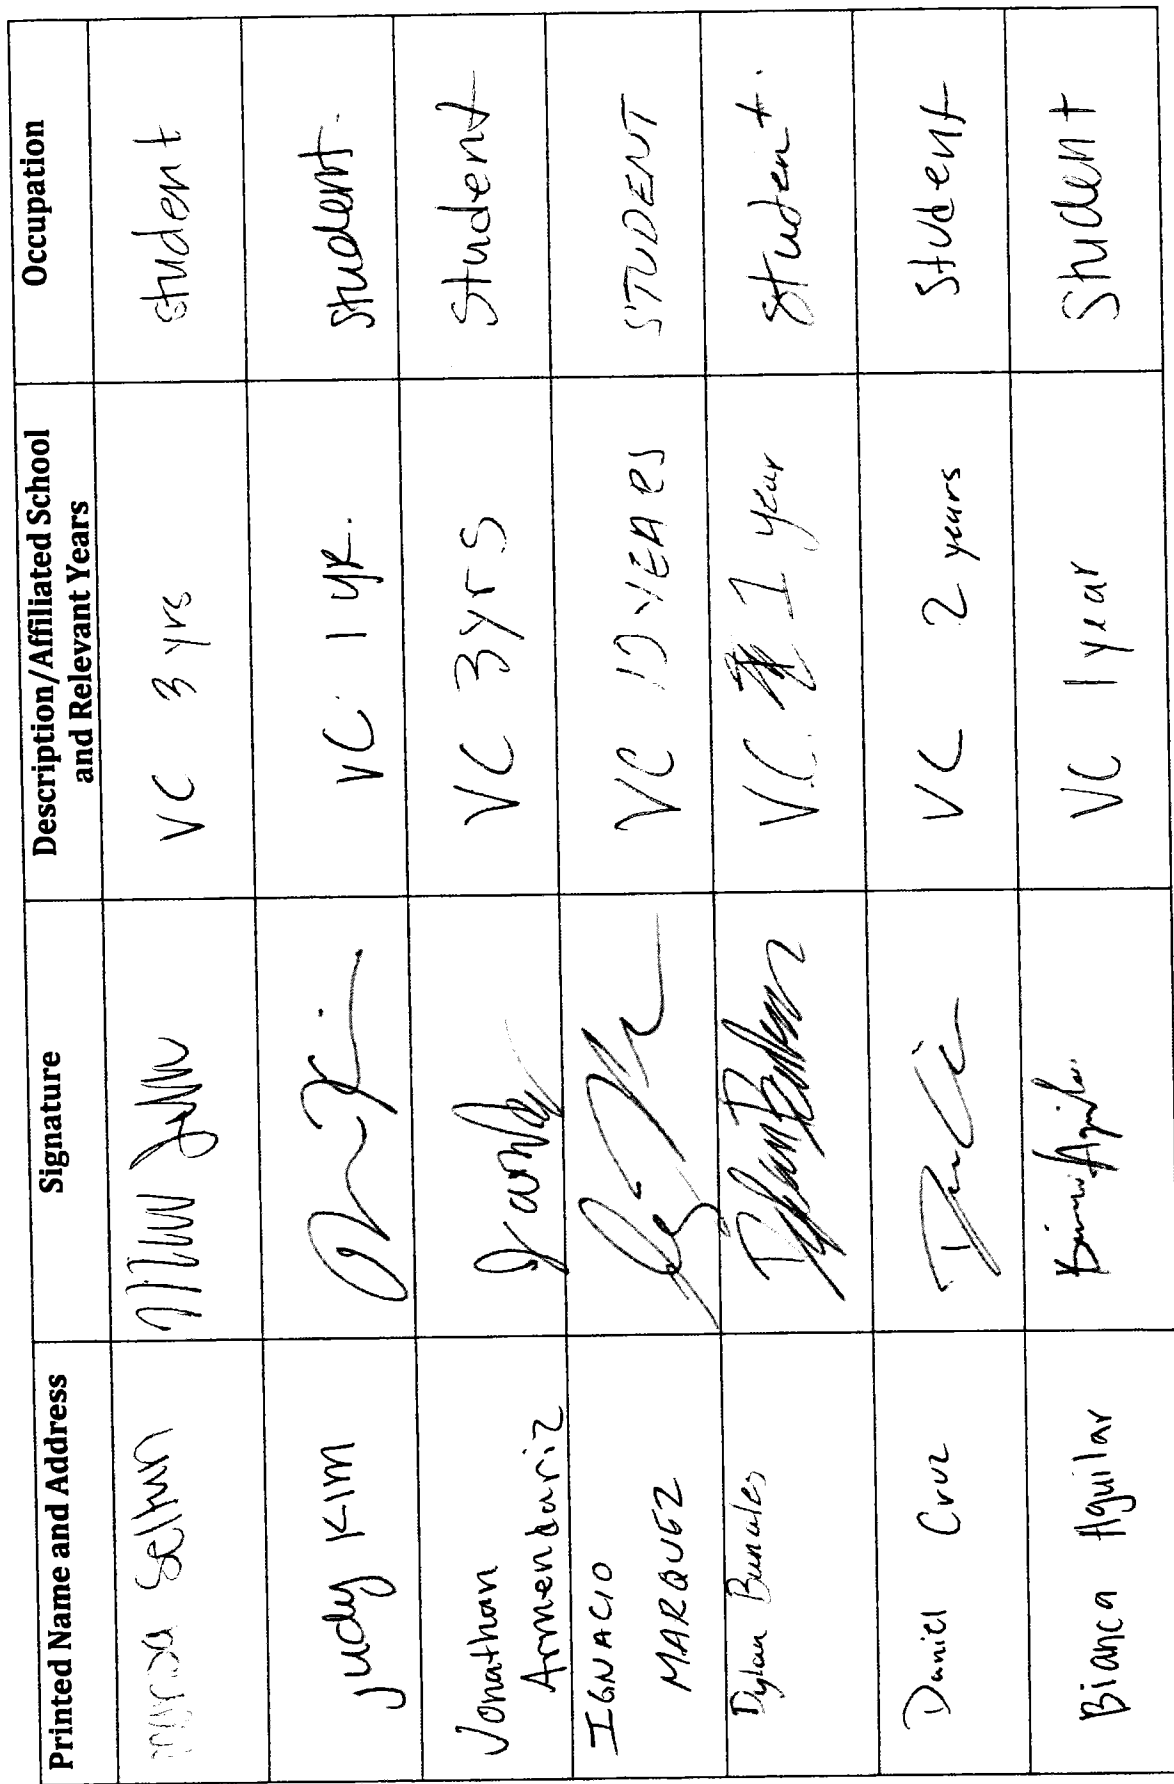 Printed Name and Address
Signature
Description/Affiliated School
and Relevant Years
Occupation
VC 3 yrs
student
Judy Kim
VC 1 yr.
student.
Jonathan
Armendariz
VC 3yrs
Student
IGNACIO
MARQUEZ
VC 10 YEARS
STUDENT
Dylan
V.C. 1 year
student.
Daniel Cruz
VC 2 years
Student
Bianca Aguilar
VC 1 year
Student